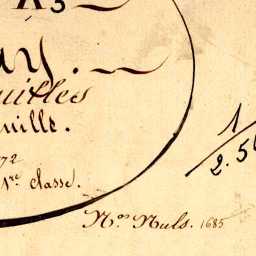 ay.
uilles
uille.
72
1re classe.
1
2.5
Nos Nuls. 1685